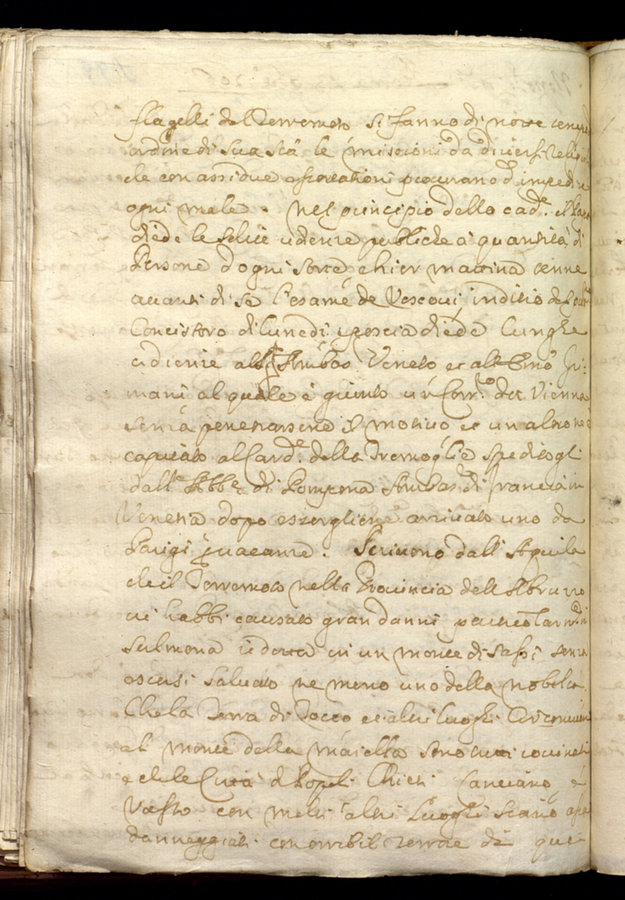 flagelli del Terremoto si fanno di notte
ordine di Sua Stà le missioni da diversi Relig
che con assidue esortationi procurano d'impedire
ogni male. Nel principio della cad.e il Papa
diede le solite udienze publiche à quantità di
Persone d'ogni sorte, e hier mattina tenne
avanti di se l'esame de Vescovi inditio del
Concistoro di lunedi, e poscia diede lunghe
udienze all' Ambas. Veneto et all' Emo Gri-
mani al quale è giunto un Corr.ro da Vienna
senza penetrarsene il motivo et un altro ne è
capitato al Card. della Tremoglia speditogli
dall' Abb.e di Pompona Ambas. di Francia in
Venetia dopo essergliene arrivato uno da
Parigi. Scrivono dall' Aquila
che il Terremoto nella Provincia dell' Abruzzo
vi habbi causato gran danni
Sulmona ridotta in un monte di sassi senza
essersi salvato ne meno uno della nobiltà
Che la Terra di Tocco et altri luoghi Circonvicini
al monte della Maiella sono tutti rovinati
e che le Città di Popoli Chieti Lanciano e
Vasto con molti altri luoghi siano
danneggiati con orribil